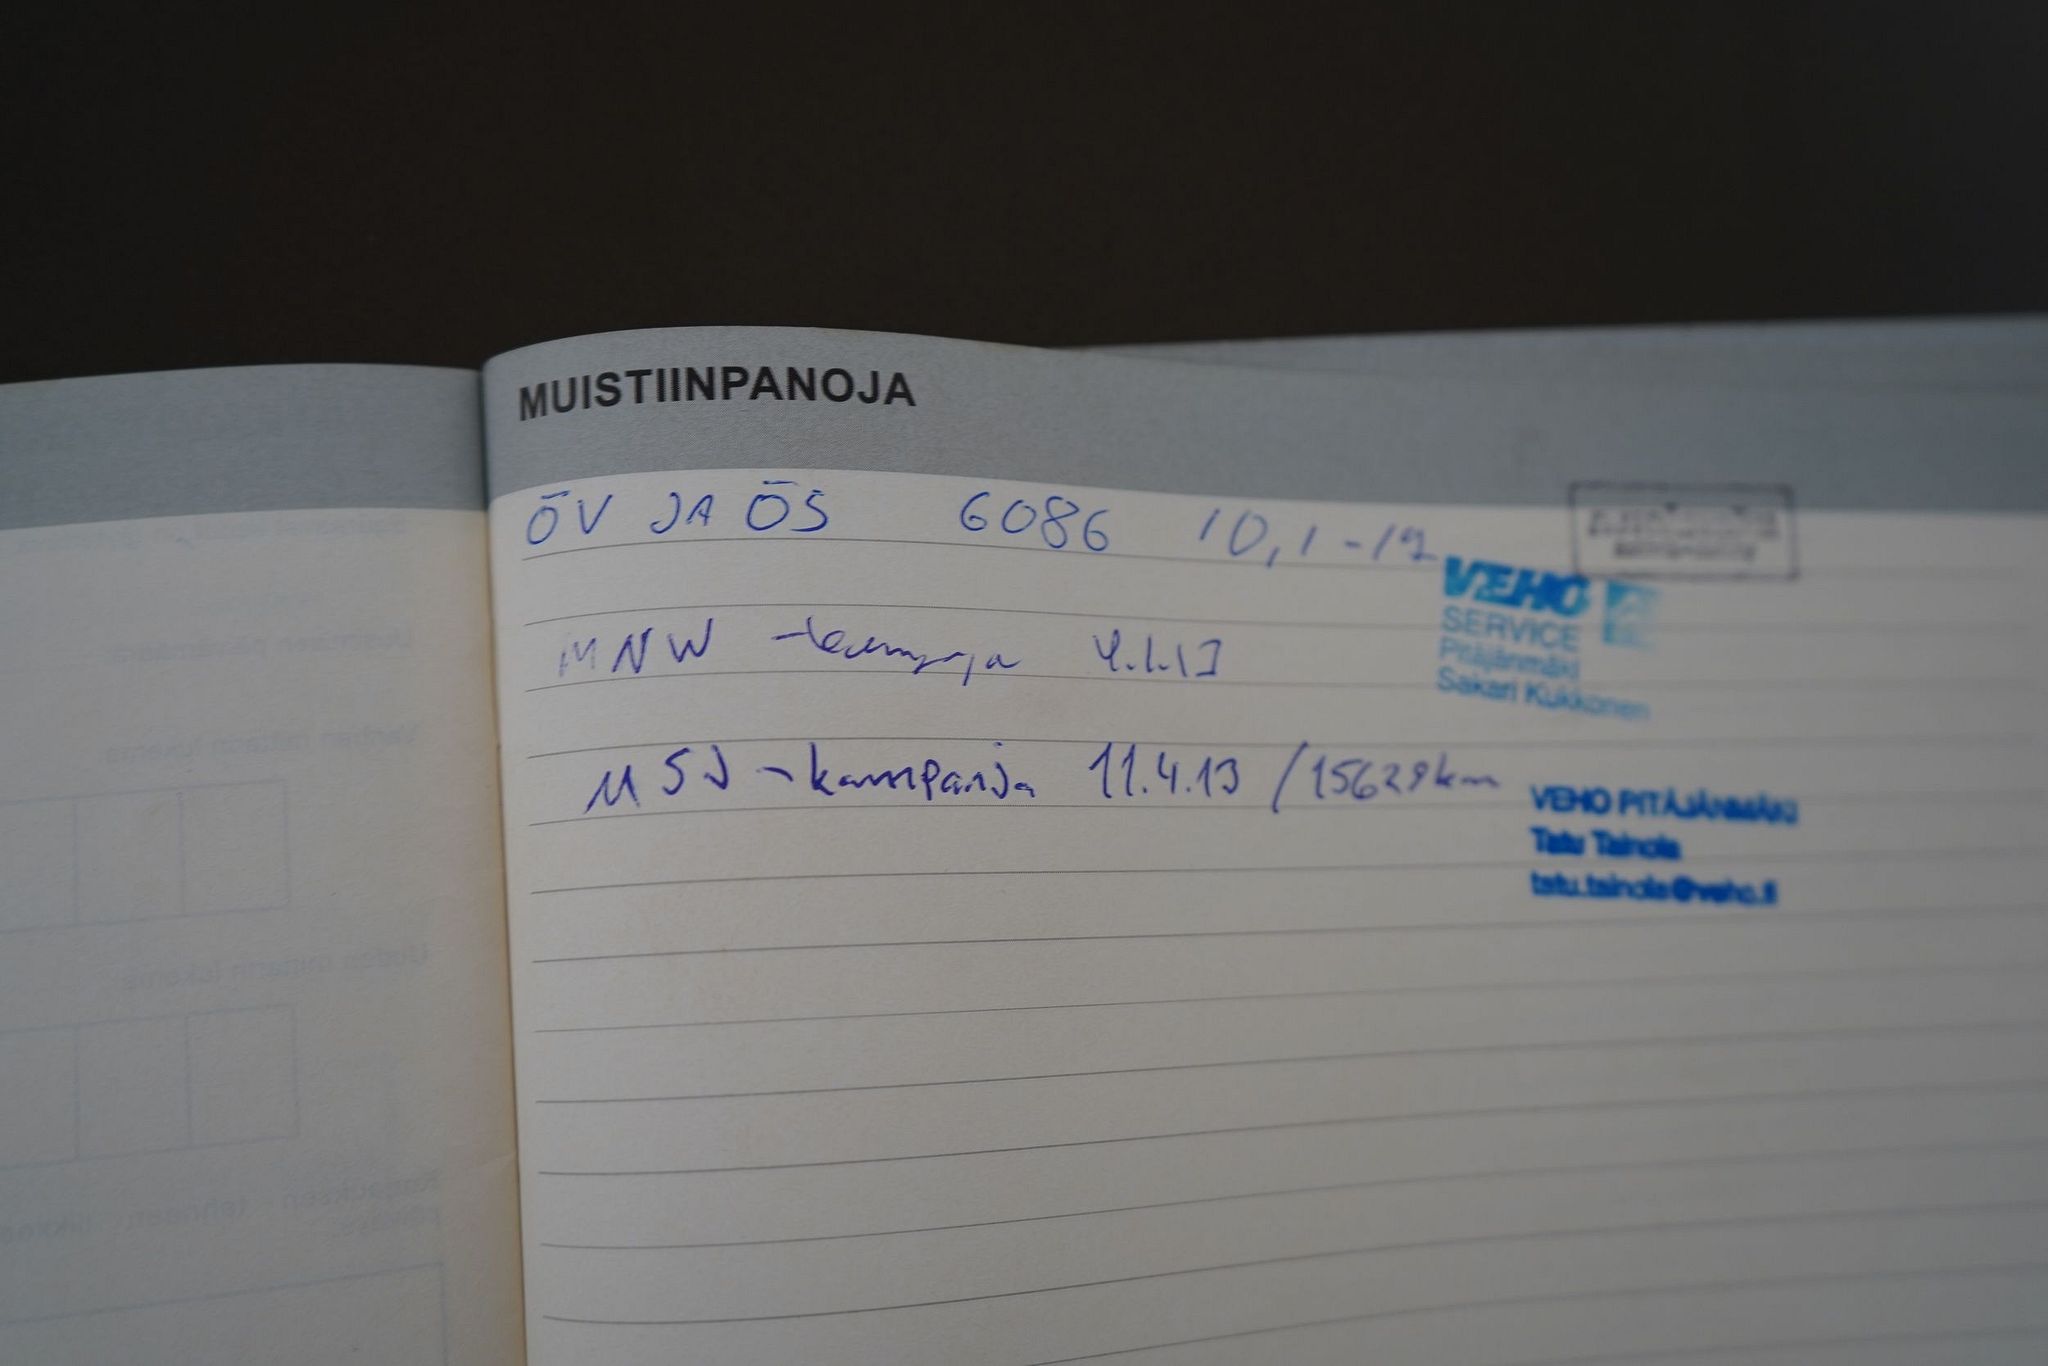 MUISTIINPANOJA
ÖV JA ÖS 6086 10,1-12
MNW -kampanja 4.1.13
VEHO
SERVICE
Pitäjänmäki
Sakari Kukkonen
MSJ -kampanja 11.4.13 /15629km
VEHO PITÄJÄNMÄKI
Tatu Tainola
tatu.tainola@veho.fi